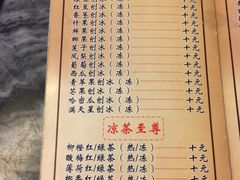 豆刨冰（冻） 十元
香芋刨冰（冻） 十元
什果刨冰（冻） 十元
鲜果刨冰（冻） 十元
椰果刨冰（冻） 十元
莲子刨冰（冻） 十元
凤梨刨冰（冻） 十元
葡萄刨冰（冻） 十元
西瓜刨冰（冻） 十元
青苹果刨冰（冻） 十元
芒果刨冰（冻） 十元
哈密瓜刨冰（冻） 十元
满天星刨冰（冻） 十元
凉茶至尊
柳橙红/绿茶（热/冻） 十元
酸梅红/绿茶（热/冻） 十元
薄荷红/绿茶（热/冻） 十元
红/绿茶（热/冻） 十元